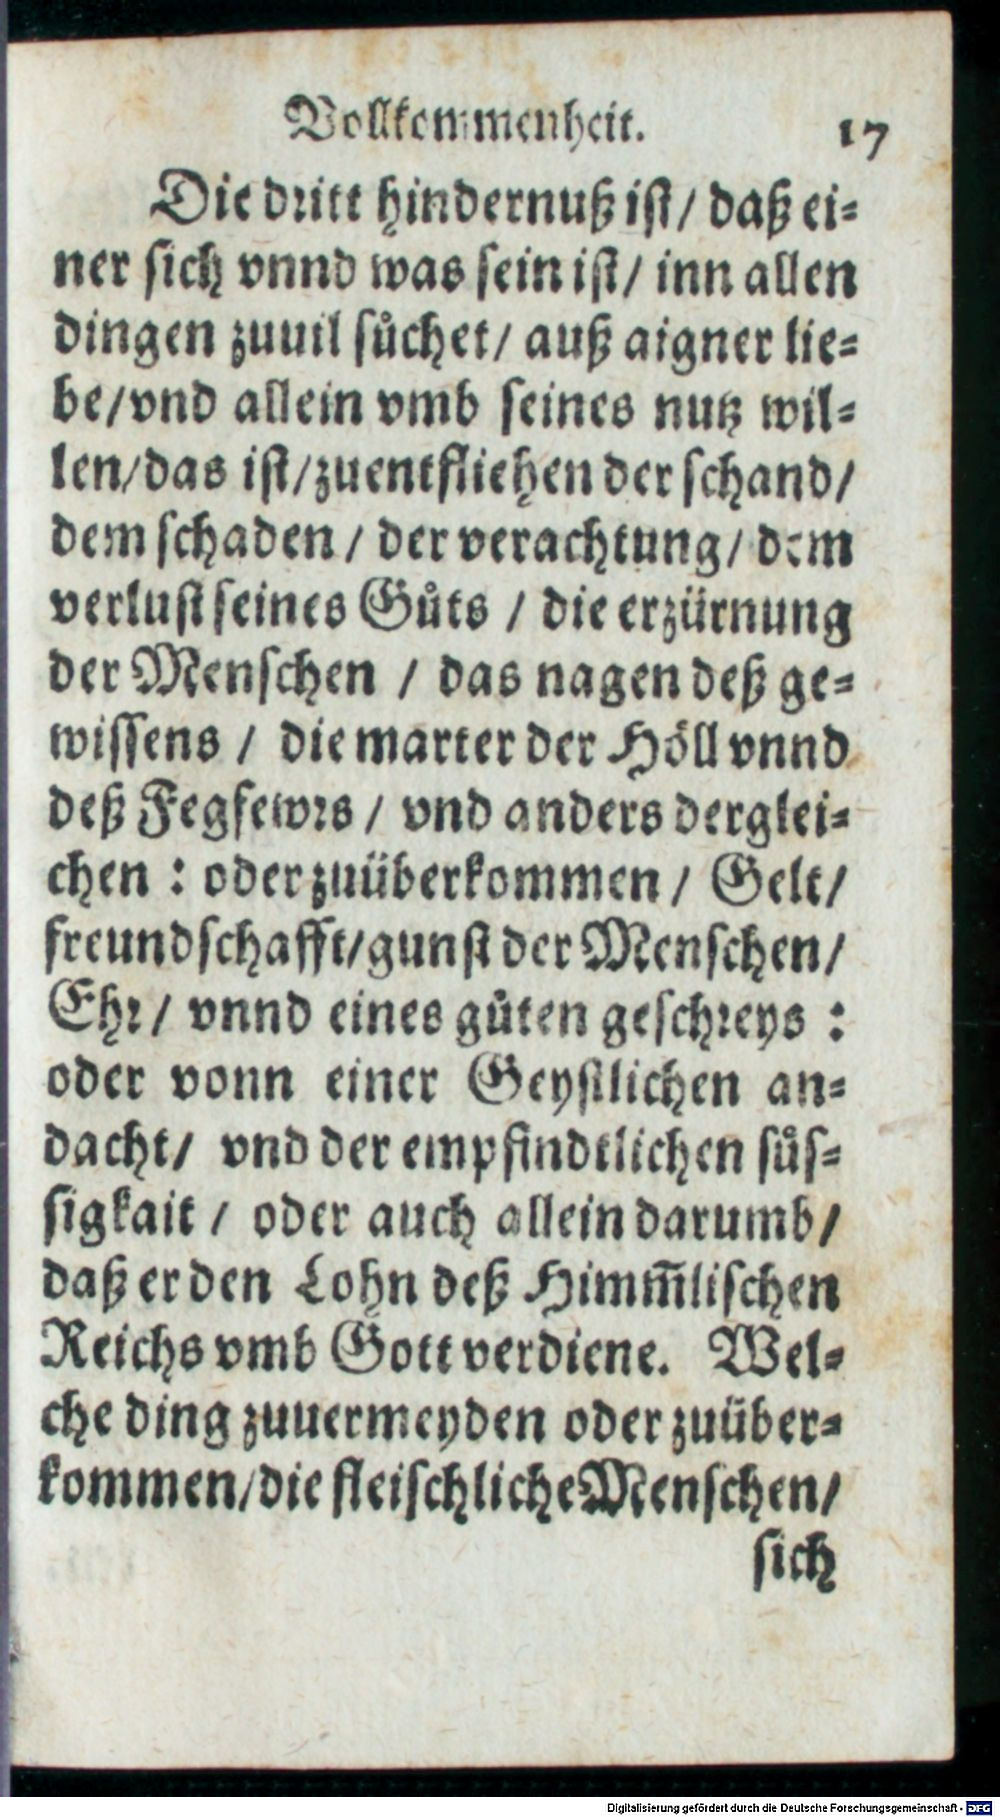 Vollkommenheit. 17
Die dritt hindernuß ist/ daß ei-
ner sich vnnd was sein ist/ inn allen
dingen zuuil sůchet/ auß aigner lie-
be/vnd allein vmb seines nutz wil-
len/das ist/zuentfliehen der schand/
dem schaden/ der verachtung/ dem
verlust seines Gůts / die erzürnung
der Menschen / das nagen deß ge-
wissens / die marter der Höll vnnd
deß Fegfewrs / vnd anders derglei-
chen : oder zuüberkommen / Gelt/
freundschafft/gunst der Menschen/
Ehr/ vnnd eines gůten geschreys :
oder vonn einer Geystlichen an-
dacht/ vnd der empfindtlichen sůs-
sigkait / oder auch allein darumb/
daß er den Lohn deß Himm̃lischen
Reichs vmb Gott verdiene. Wel-
che ding zuuermeyden oder zuüber-
kommen/die fleischliche Menschen/
sich
Digitalisierung gefördert durch die Deutsche Forschungsgemeinschaft - DFG